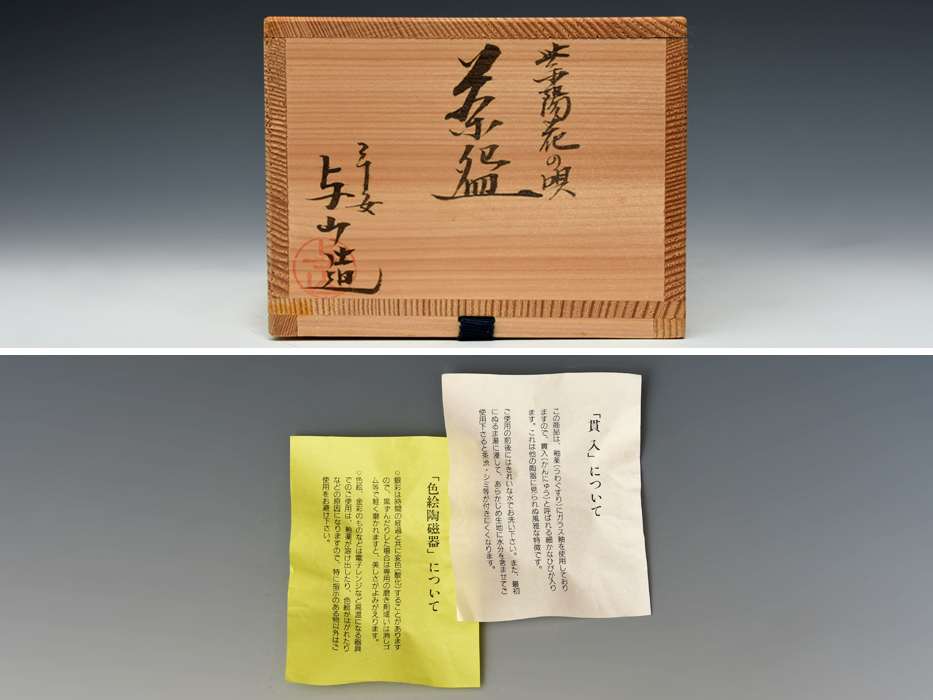 紫陽花の唄
茶盌
三千女
与山造
「貫入」について
この商品は、釉薬(うわぐすり)にガラス釉を使用しており
ますので、貫入(かんにゅう)と呼ばれる細かなひびが入り
ます。これは他の陶器に見られぬ風雅な特徴です。
ご使用の前後にはきれいな水でお洗い下さい。また、最初
にぬるま湯に浸して、あらかじめ生地に水分を含ませてご
使用下さると茶渋・シミ等が付きにくくなります。
「色絵陶磁器」について
○銀彩は時間の経過と共に変色(酸化)することがあります
ので、黒ずんだりした場合は専用の磨き剤或いは消しゴ
ム等で軽く磨かれますと、美しさがよみがえります。
○色絵、金彩のものなどは電子レンジなど高温になる器具
でのご使用は、釉薬が溶け出したり、色絵がはがれたり
などの原因になりますので、特に指示のある物以外はご
使用をお避け下さい。